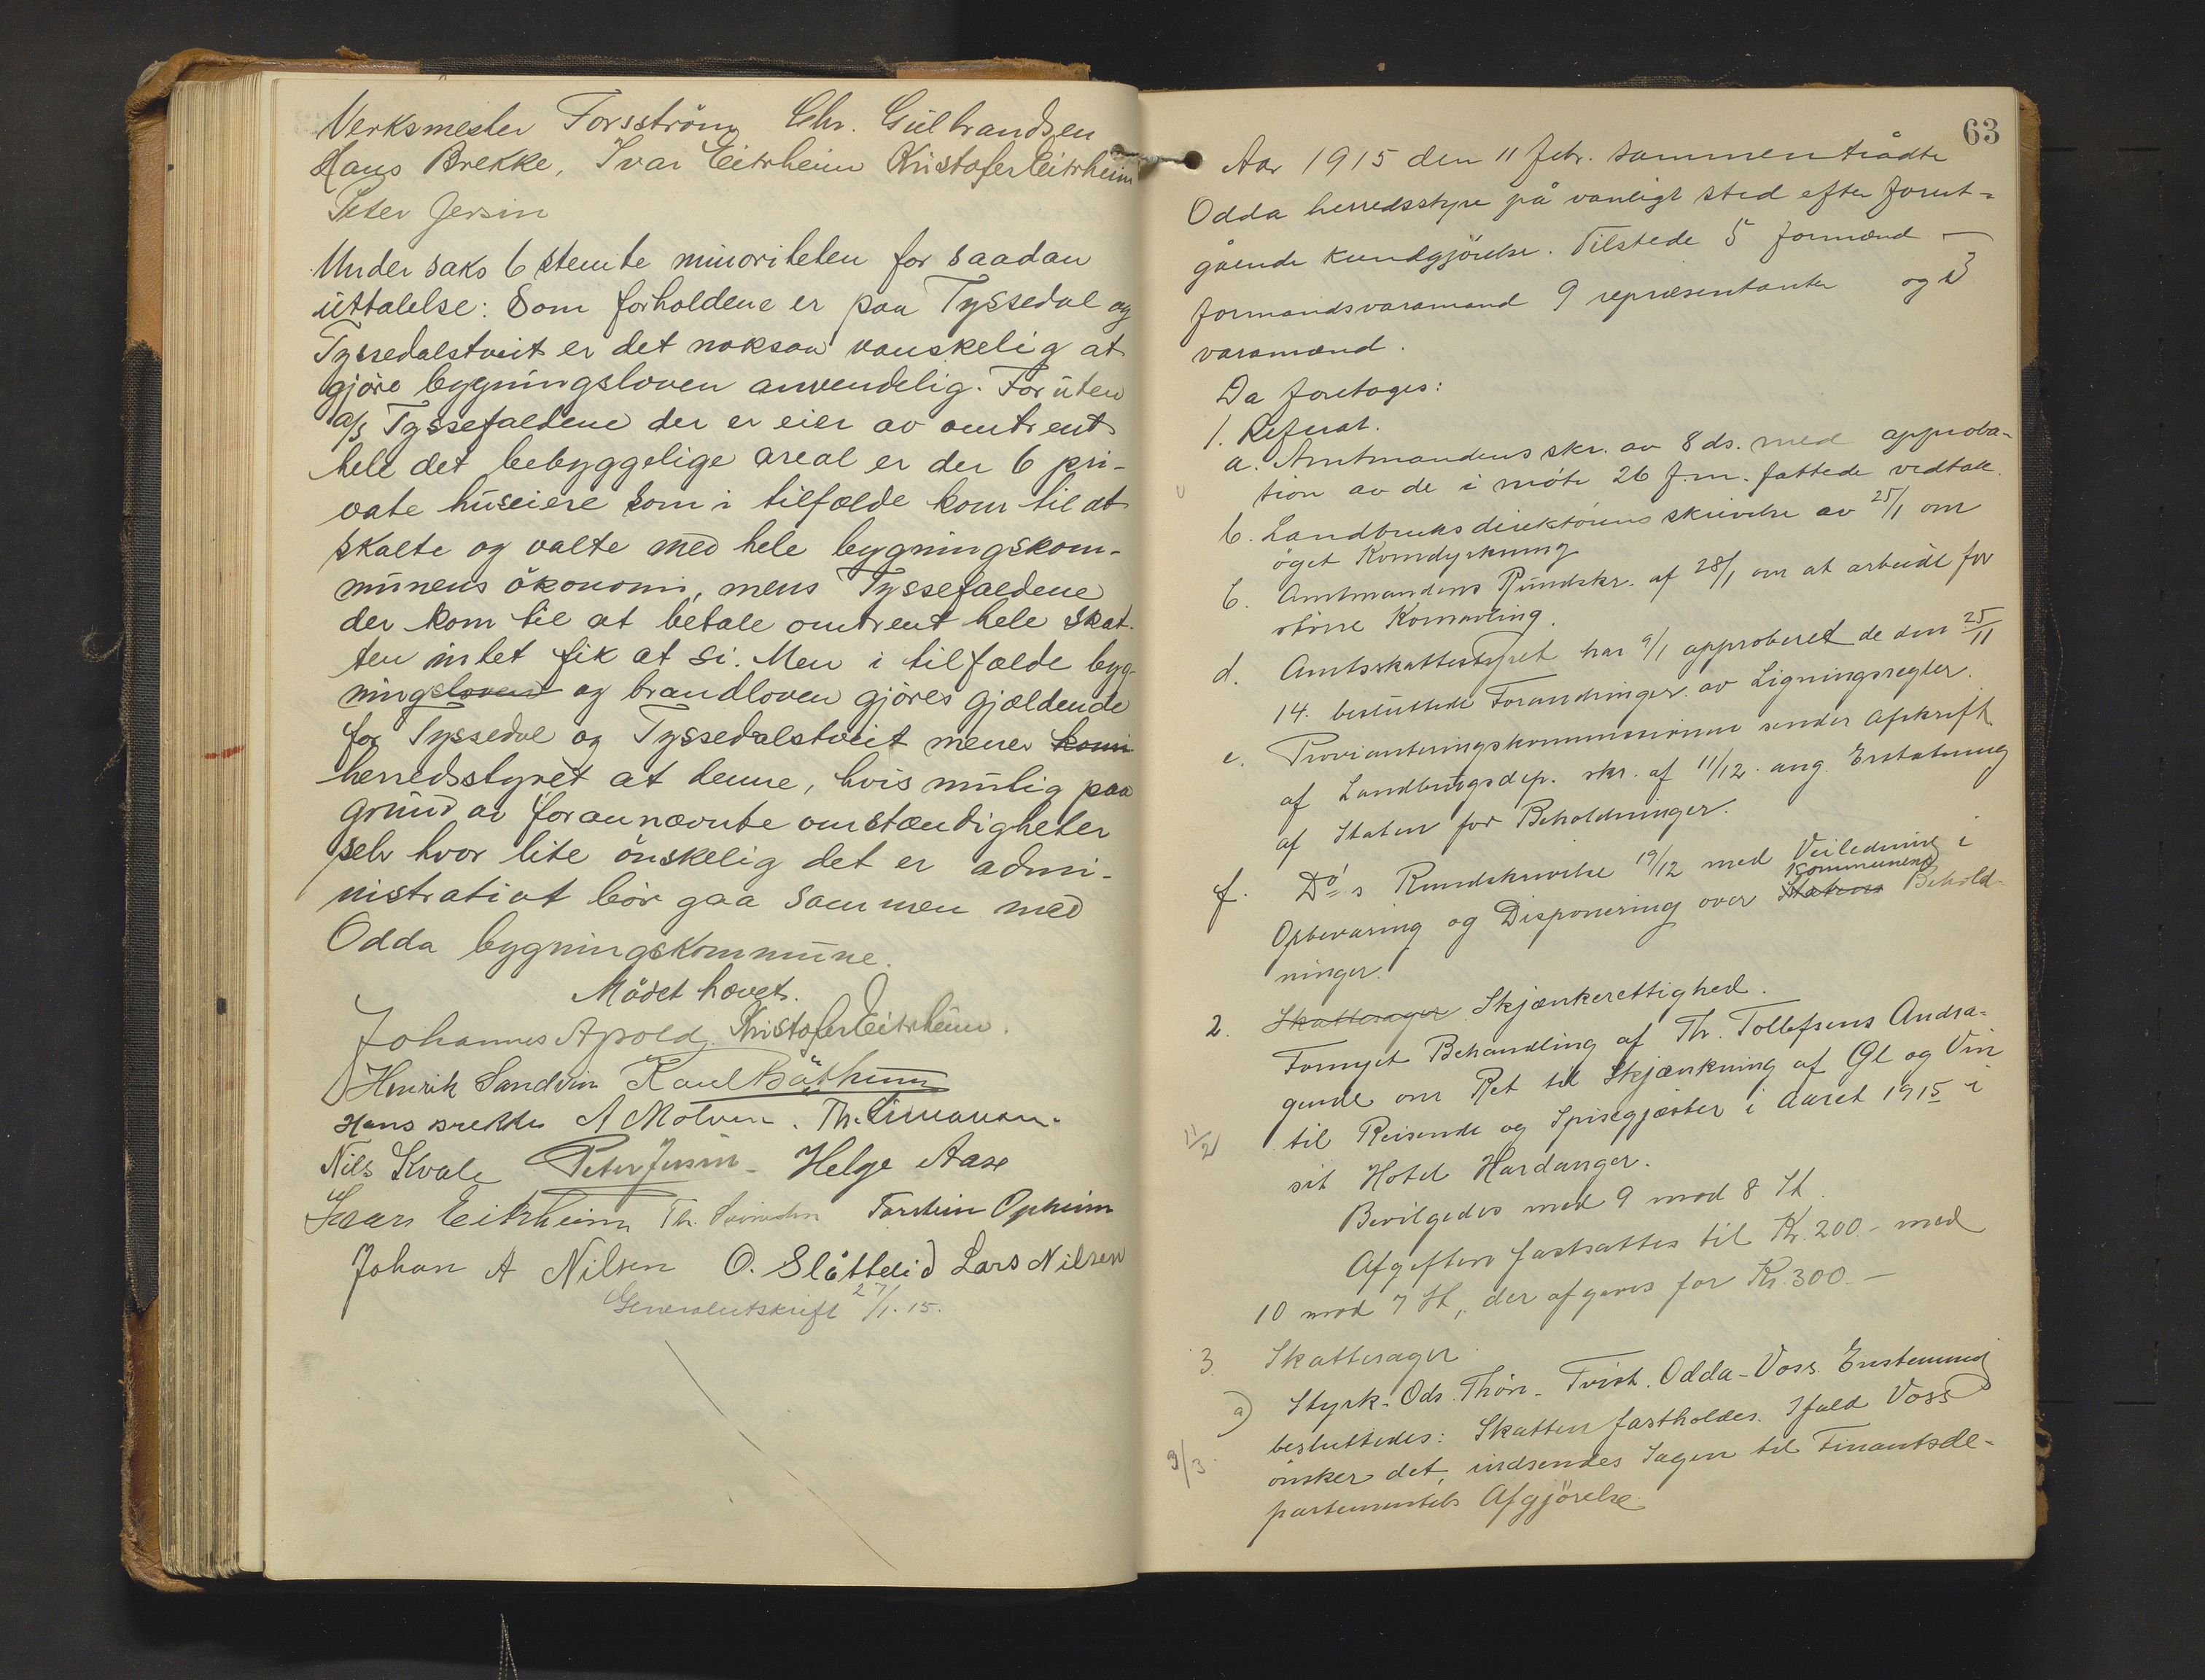 Verksmester Forsström Chr. Gulbrandsen
Hans Brekke, Ivar Eitrheim Kristofer Eitrheim
Peter Jersin
Under saks 6 stemte minoriteten for saadan
uttalelse: Som forholdene er paa Tyssedal og
Tyssedalstveit er det noksaa vanskelig at
gjøre bygningsloven anvendelig. Foruten
a/s Tyssefaldene der er eier av omtrent
hele det bebyggelige areal er der 6 pri-
vate huseiere som i tilfælde kom til at
skalte og valte med hele bygningskom-
munens økonomi, mens Tyssefaldene
der kom til at betale omtrent hele skat-
ten intet fik at si. Men i tilfælde byg-
ningsloven og brandloven gjøres gjældende
for Tyssedal og Tyssedalstveit mener kom
herredsstyret at denne, hvis mulig paa
grund av forannævnte omstændigheter
selv hvor lite ønskelig det er admi-
nistrativt bør gaa sammen med
Odda bygningskommune.
Mødet hævet.
Johannes Apold. Kristofer Eitrheim.
Henrik Sandvin Karl Böthun
Hans Brekke A Molven. Th. Simonsen.
Nils Kvale Peter Jersin - Helge Aase
Isaar Eitrheim Th. Torstein Opheim
Johan A Nilsen O. Slåttelid Lars Nilsen
Generalutskrift 27/1. 15.
63
Aar 1915 den 11 febr. sammentrådte
Odda herredsstyre på vanligt sted efter forut-
gående kundgjörelse. Tilstede 5 formænd -
formandsvaramænd 9 repræsentanter og 3
varamænd.
Da foretoges:
1. Referat.
a. Amtmandens skr. av 8 ds. med approba-
tion av de i möte 26 f.m. fattede vedtak.
b. Landbruksdirektörens skrivelse av 25/1 om
öget Korndyrkning
c. Amtmandens Rundskr. af 28/1 om at arbeide for
större Kornavling.
d. Amtsskattestyret har 9/1 approberet de den 25/11
14. besluttede Forandringer av Ligningsregler.
e. Provianteringskommissionen sender Afskrift
af Landbrugsdep. skr. af 11/12. ang. Erstatning
af Staten for Beholdninger.
f. Do's Rundskrivelse 19/12 med Veiledning i
Opbevaring og Disponering over Statens Kommunens Behold-
ninger.
2. Skattesager Skjænkerettighed.
Fornyet Behandling af Th. Tollefsens Andra-
gende om Ret til Skjænkning af Øl og Vin
til Reisende og Spisegjæster i Aaret 1915 i
11/2
sit Hotel Hardanger.
Bevilgedes med 9 mod 8 St.
Afgiften fastsattes til Kr. 200.- med
10 mod 7 St, der afgaves for Kr. 300.-
3. Skattesager
a) Styrk. Ods. Thön. Tvist. Odda-Voss. Enstemmig
besluttedes: Skatten fastholdes. Ifald Voss
9/3
önsker det, indsendes Sagen til Finantsde-
partementets Afgjörelse.